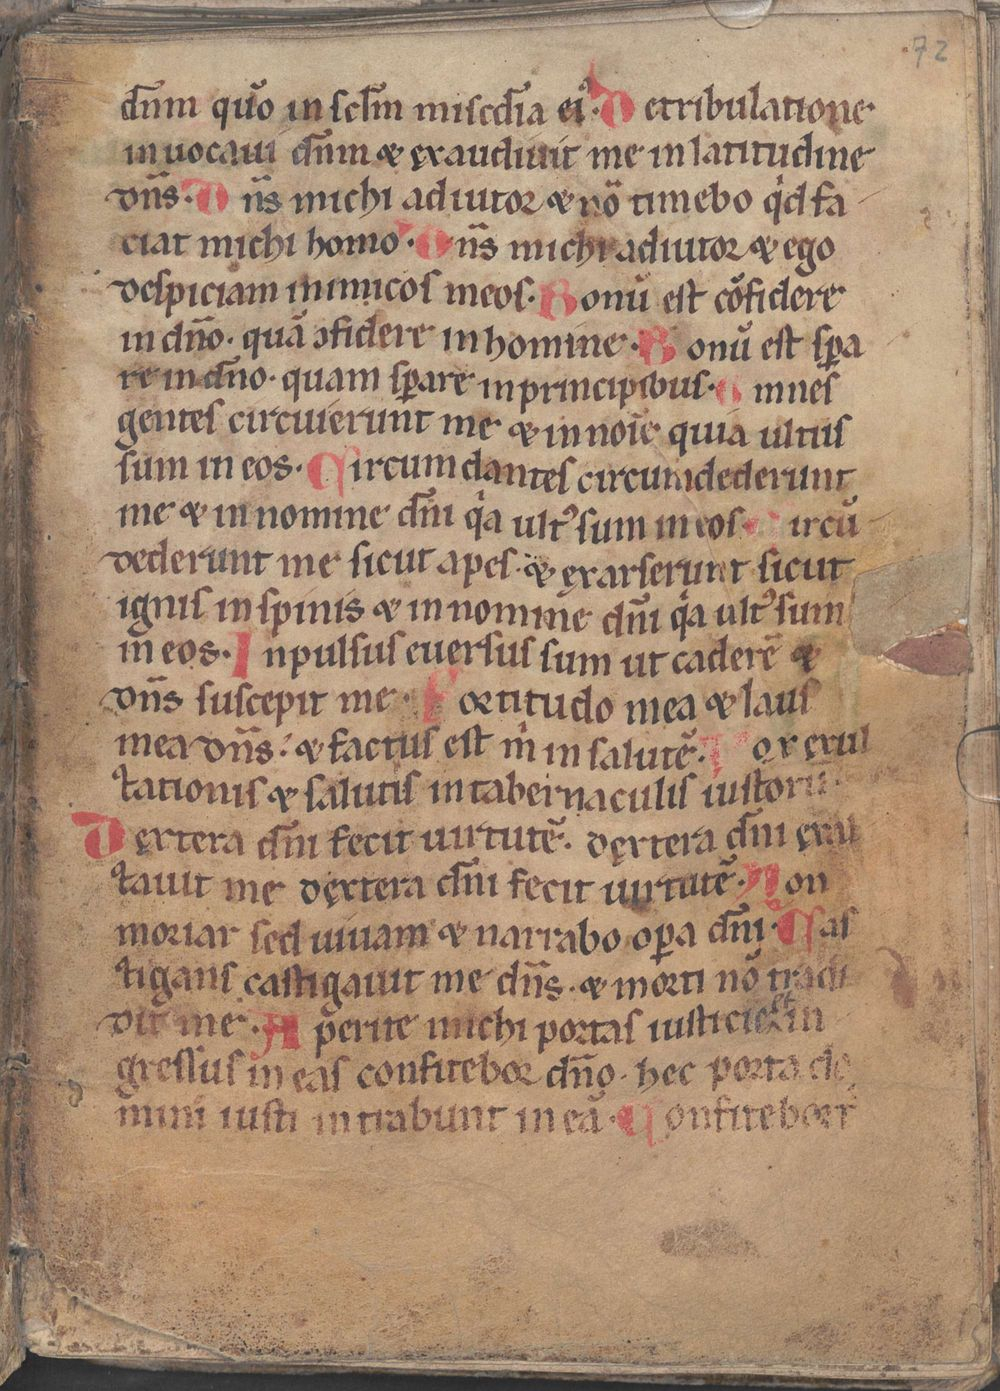 72
dn̄m qu̅o in sclm̄ misedīa ei⁹. De tribulatione
inuocaui dn̄m ⁊ exaudiuit me in latitudine
dn̄s. Dn̄s michi adiutor ⁊ nō timebo qͥd fa
ciat michi homo. Dn̄s michi adiutor ⁊ ego
despiciam inimicos meos. Bonū est cōfidere
in dn̄o. quā ꝯfidere in homine. Bonū est sꝑa
re in dn̄o. quam sꝑare in principibus. Omnes
gentes circuierunt me ⁊ in noīe quia ultus
sum in eos. Circumdantes circumdederunt
me ⁊ in nomine dn̄i qͥa ult⁹ sum in eos. Circū
dederunt me sicut apes. ⁊ exarserunt sicut
ignis in spinis ⁊ in nomine dn̄i qͥa ult⁹ sum
in eos. Inpulsus euersus sum ut caderē ⁊
dn̄s suscepit me. Fortitudo mea ⁊ laus
mea dn̄s. ⁊ factus est m̄ in salutē. Vox exul
tationis ⁊ salutis in tabernaculis iustorū.
Dextera dn̄i fecit uirtutē. dextera dn̄i exal
tauit me dextera dn̄i fecit uirtutē. Non
moriar sed uiuam ⁊ narrabo oꝑa dn̄i. Cas
tigans castigauit me dn̄s. ⁊ morti nō tradi
dit me. Aperite michi portas iusticie et in
gressus in eas confitebor dn̄o. hec porta do
mini iusti intrabunt in eā. Confitebor t